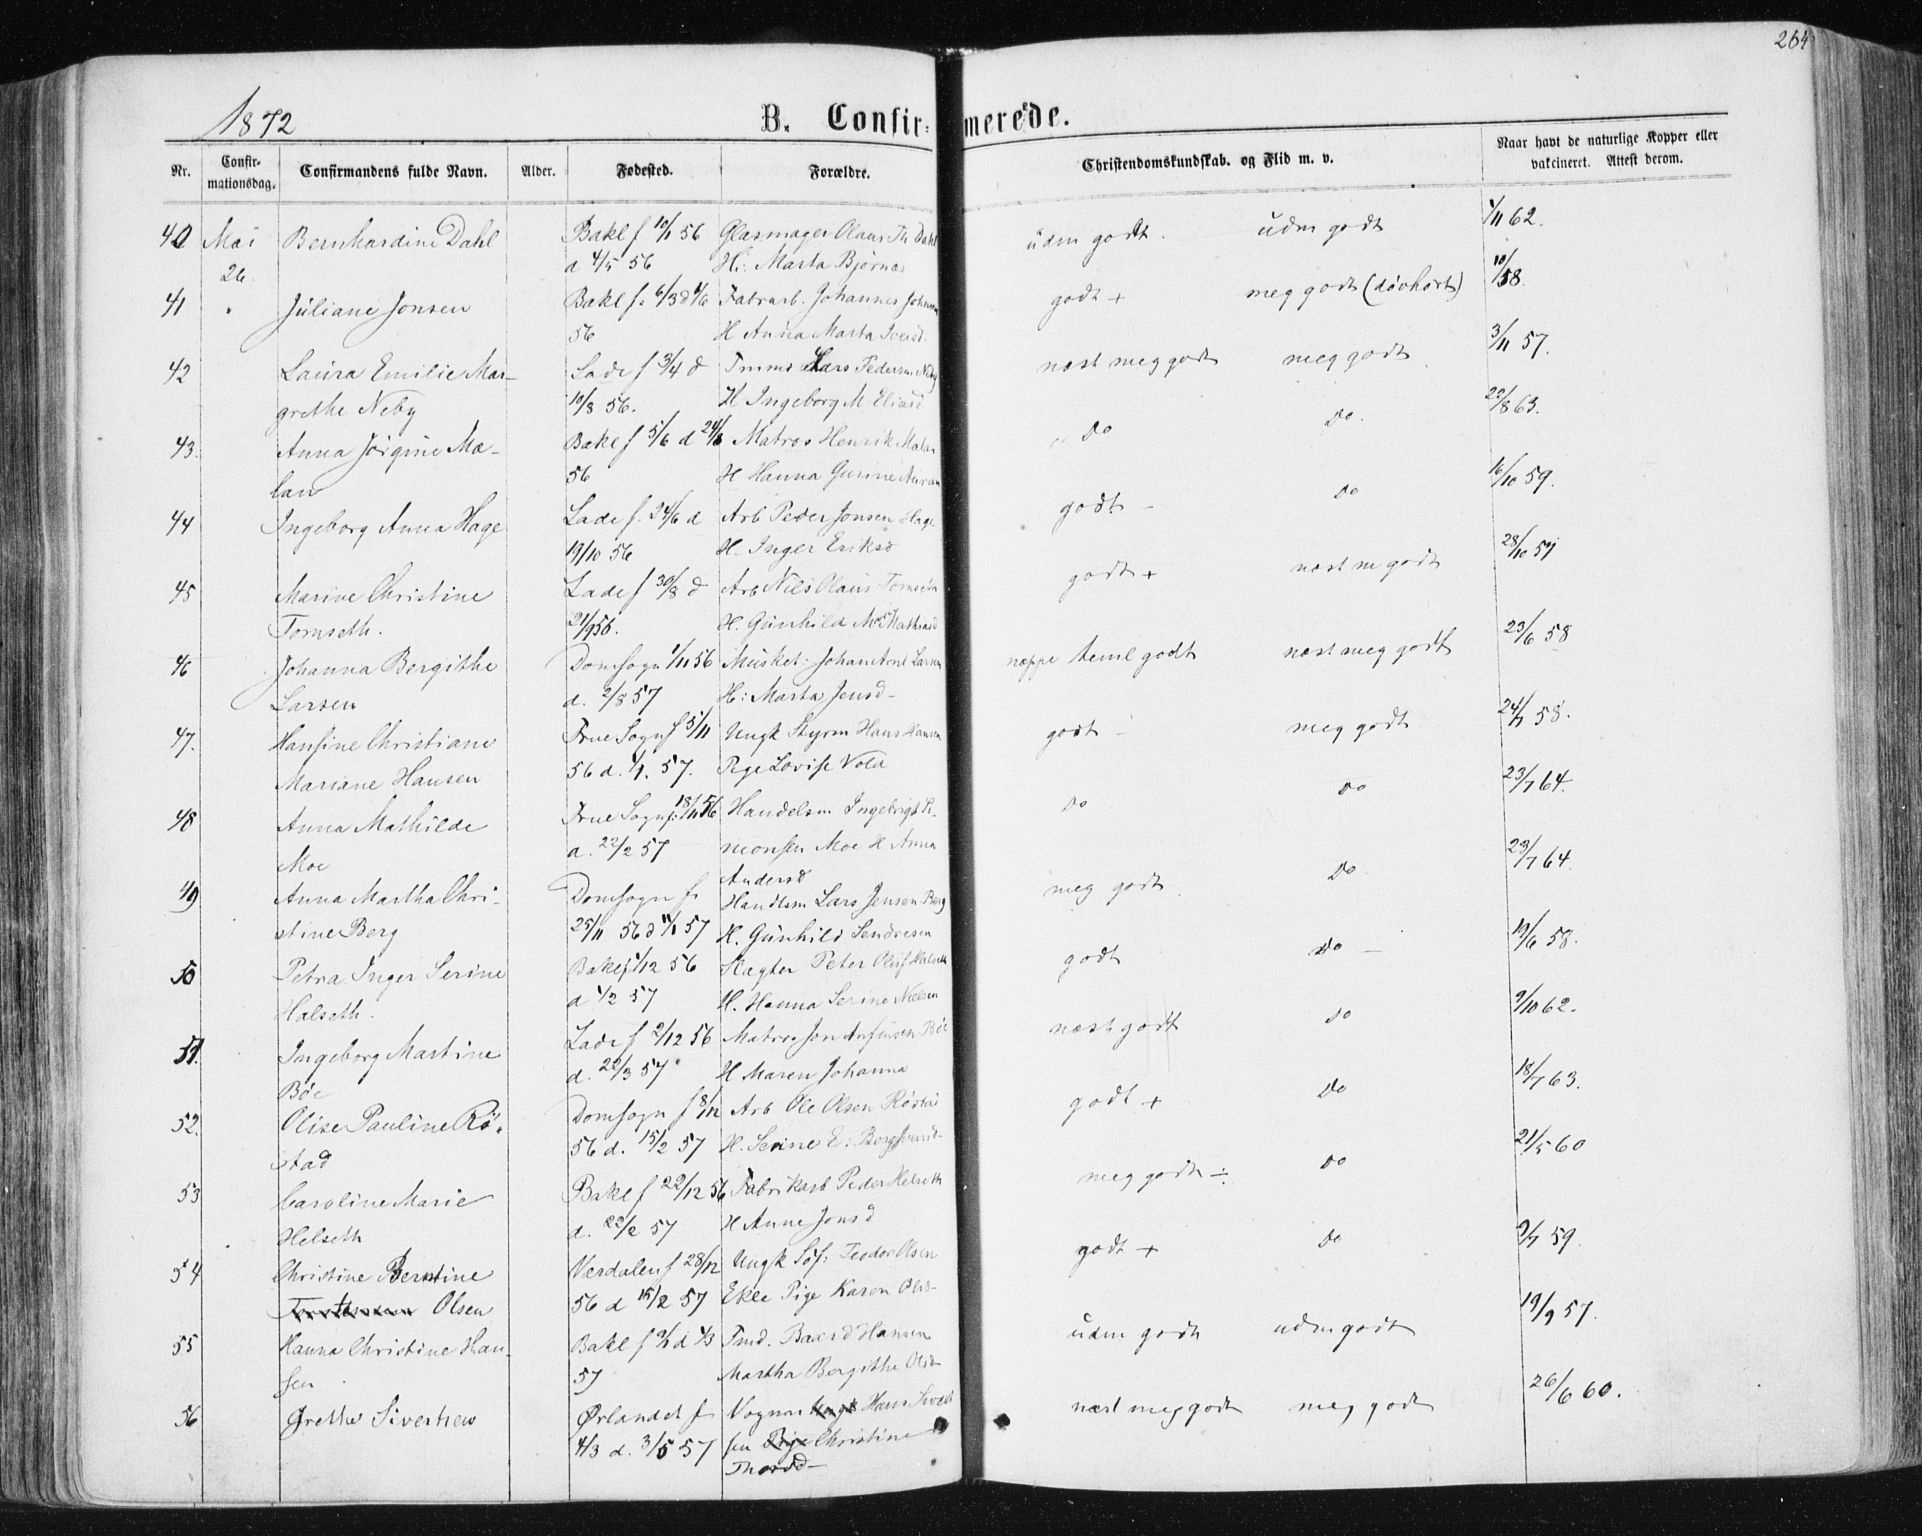 264
1872
B. Confir- merede.
Nr. Confir-mationsdag. Confirmandens fulde Navn. Alder. Fødested. Forældre. Christendomskundskab. og Flid m. v. Naar havt de naturlige Kopper eller vakcineret. Attest derom.
40 Mai Bernhardine Dahl Bakl f 10/1 56 Glasmager Olaus Th Dahl udm godt udm godt 1/11 62.
26. d 4/5 56 H: Marta Bjørnas
41 " Juliane Jonsen Bakl f. 6/3 d 1/6 Fabrarb. Johannes Johnsen godt + meg godt (døvhørt) 10/ 58.
56 H Anna Marta Iversd.
42 Laura Emilie Mar- Lade f 3/4 d Tmmd Lars Pedersen Neby næst meg godt meg godt 3/11 57.
grethe Neby 10/8 56. H Ingeborg M Eliasd.
43. Anna Jørgine Ma- Bakl f 5/6 d 24/8 Matros Henrik Malan " Do Do. 22/8 63.
lan 56 H Hanna Gurine
44 Ingeborg Anna Hage Lade f. 24/6 d Arb Peder Jonsen Hage godt - Do 16/10 59.
19/10 56 H. Inger Eriksd
45 Marine Christine Lade f 30/8 d Arb Nils Olaus Tomseth godt + næst m godt 28/10 57
Tomseth. 21/9 56. H. Gunhild Mathiasd
46 Johanna Bergithe Domsogn 1/11 56 Musket: Johan Arnt Larsen neppe teml godt næst meg godt 23/6 58
Larsen d. 2/8 57 H: Marta Jensd-
47. Hansine Christiane Frue Sogn f 5/11 Ungk Styrm Hans Hansen godt - meg godt 24/7 58.
Mariane Hansen 56 d. 1/1. 57. Pige Lovise Vold
48 Anna Mathilde Frue Sogn f: 18/11 56 Handelsm Ingebrigt Si- Do Do 23/7 64.
Moe d. 22/2 57 monsen Moe H Anna
Andersd
49 Anna Martha Chri- Domsogn f. Handlsm Lars Jensen Berg meg godt Do 23/7 64.
stine Berg 25/11 56 d 11/1 57 H. Gunhild Sendresen
50 Petra Inger Serine Bakl f 1/12 56 Slagter Peter Oluf Halseth godt Do - 19/6 58.
Halseth. d 1/2 57 H. Hanna Serine Nielsen
51. Ingeborg Martine Lade f 2/12 56 Matros Jon Anfinsen Bøe næst godt Do 9/10 62.
Bøe d. 22/3 57 H Maren Johanna
52. Olise Pauline Rø- Domsogn f 8/12 Arb Ole Olsen Røstad godt + Do 18/7 63.
stad 56 d. 15/2 57 H. Serine E: Bergsvend-
53 Caroline Marie Bakl f 22/12 56 Fabrikarb Peder Helseth meg godt ÷ Do 21/5 60
Helseth d. 22/2 57 H Anne Jonsd
54 Christine Berntine Verdalen f 28/12 Ungk Søf: Teodor Olsen godt + Do 9/7 59.
Olsen 56 d 15/2 57 Ekle Pige Karen Olsd-
55 Hanna Christine Han- Bakl f 9/1 d 1/3 Tmd. Baard Hansen udm godt udm godt 19/9 57.
sen 57 Martha Bergithe Olsd-
56 Grethe Sivertsen Ørlandet f Vognm Ungk Hans Sivert- næst meg godt meg godt 26/6 60.
4/3 d. 3/5 57 sen Pige Christine
Thorsd-